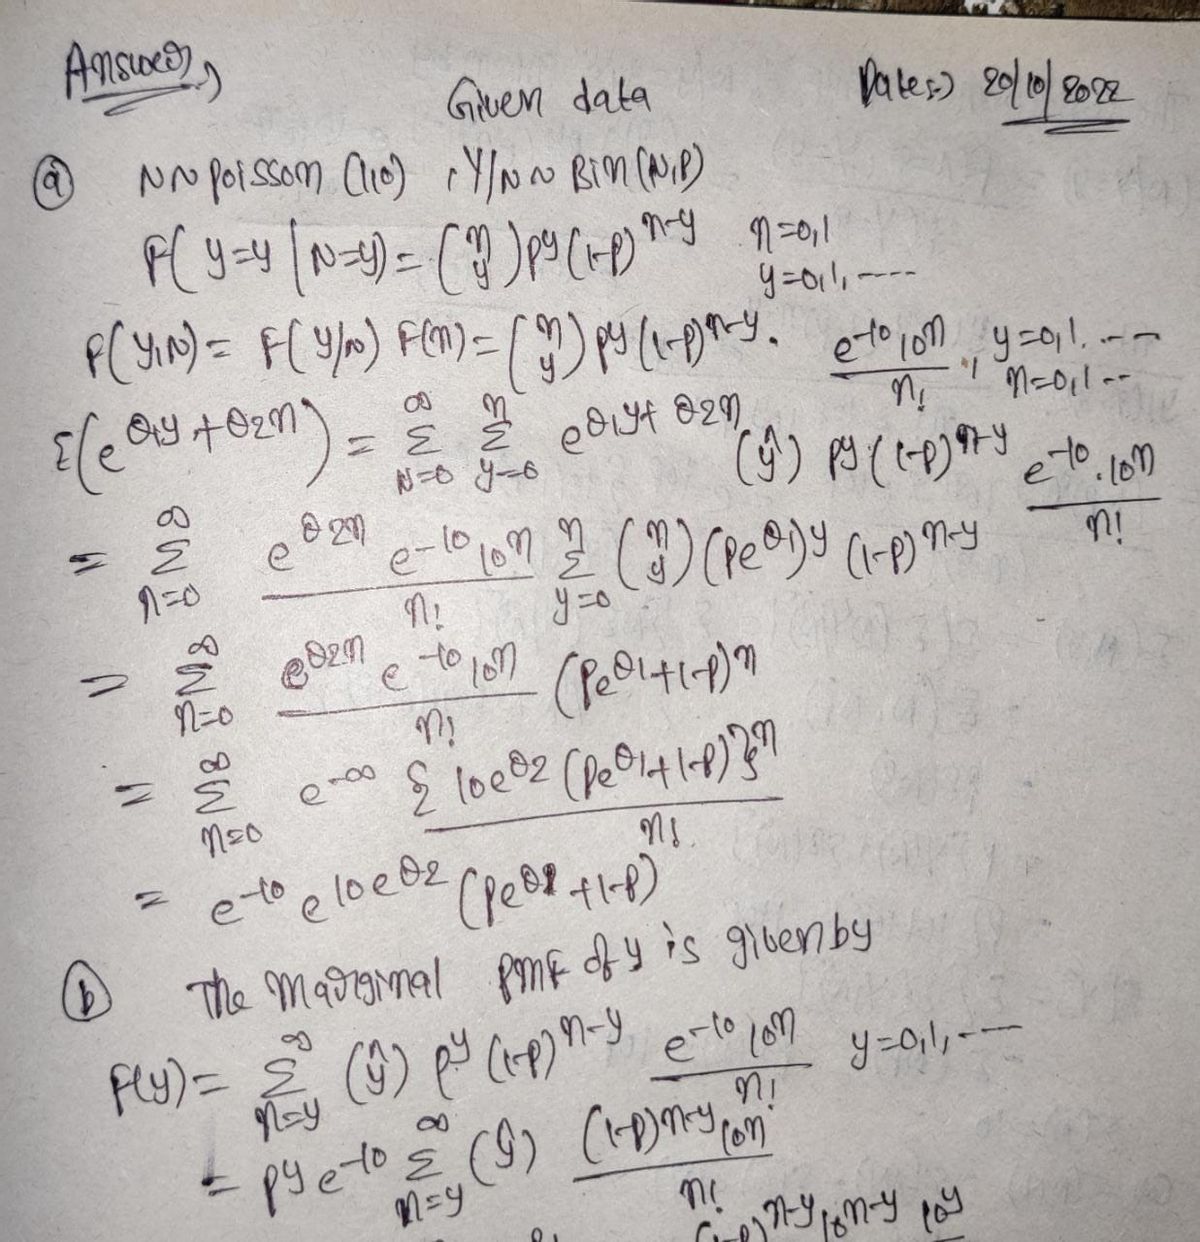 Answer,
Given data Date:-) 20/10/2022
(a) N~poisson (10) , Y/N ~ Bin (N,P)
P( Y=y | N=y) = (n y) p^y (1-p)^n-y n=0,1 y=0,1, ----
P(Y,N) = F(Y/N) F(n) = (n y) p^y (1-p)^n-y . e^-10 10^n / n! , y=0,1, ... n=0,1 --
E(e^θ1y + θ2n) = Σ^∞ N=0 Σ^n y=0 e^θ1y + θ2n (n y) p^y (1-p)^n-y e^-10 . 10^n / n!
= Σ^∞ n=0 e^θ2n e^-10 10^n / n! Σ^n y=0 (n y) (pe^θ1)^y (1-p)^n-y
= Σ^∞ n=0 e^θ2n e^-10 10^n / n! (pe^θ1+1-p)^n
= Σ^∞ n=0 e^-∞ {10e^θ2 (pe^θ1+1-p)}^n / n!
= e^-10 e^10e^θ2 (pe^θ1 +1-p)
(b) The Marginal PMF of y is given by
F(y) = Σ^∞ n=y (n y) p^y (1-p)^n-y e^-10 10^n / n! y=0,1, ----
= p^y e^-10 Σ^∞ n=y (n y) (1-p)^n-y 10^n / n!
(1-p)^n-y 10^n-y 10^y